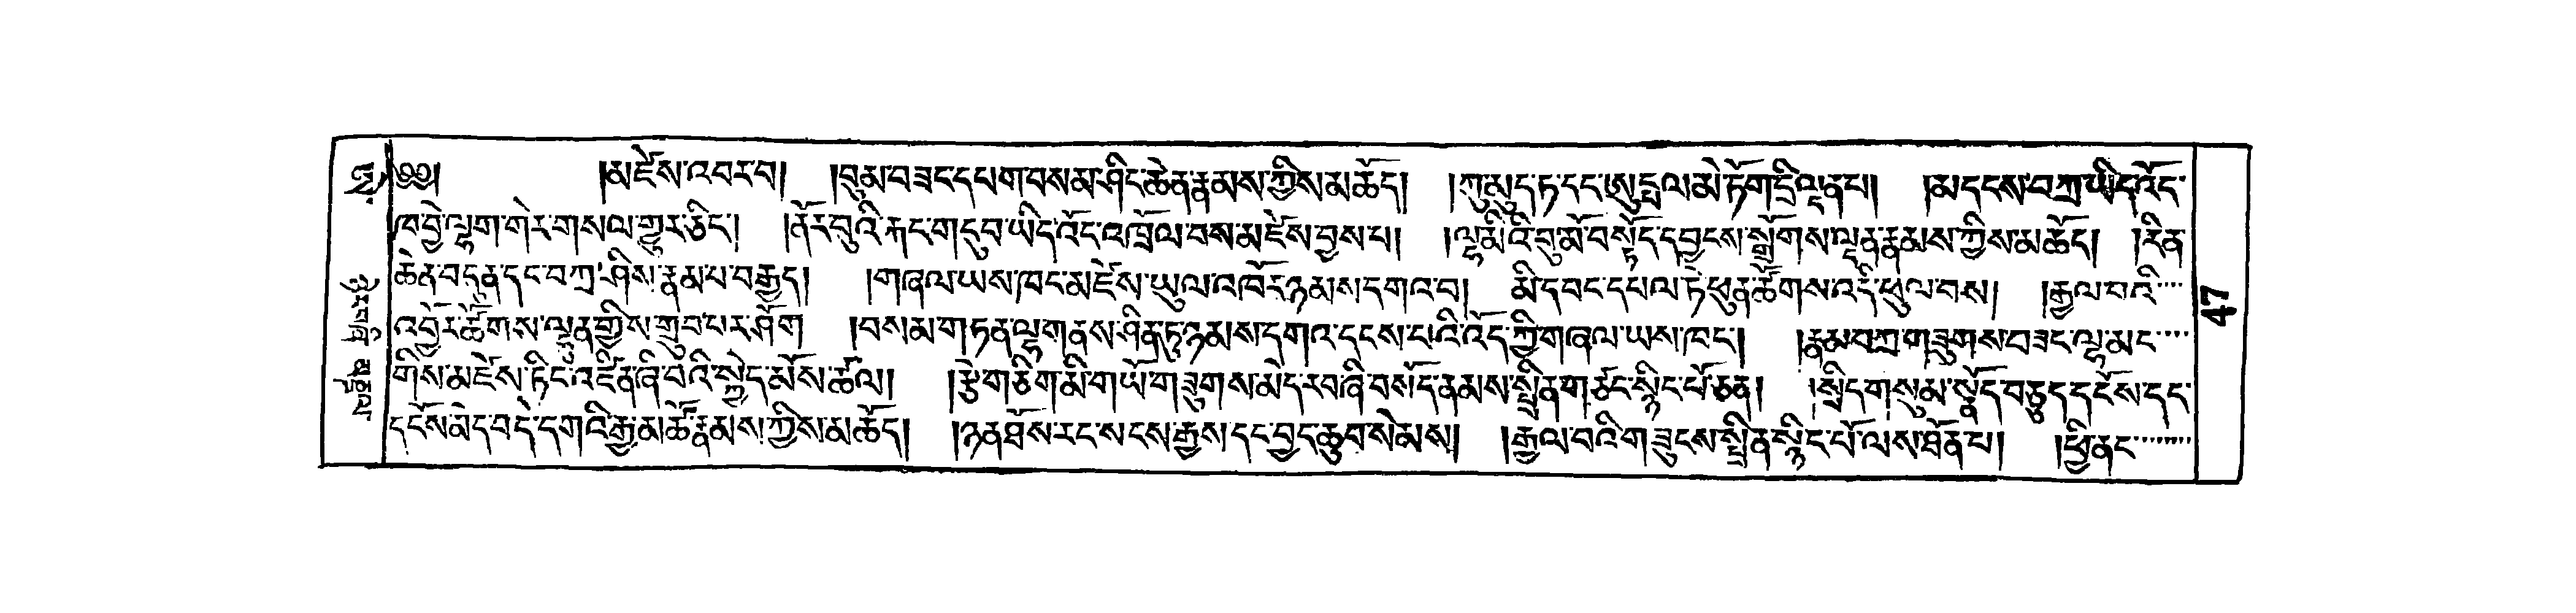 ༄༅། །མཛེས་འབར་བ། །བུམ་བཟང་དཔག་བསམ་ཤིང་ཆེན་རྣམས་ཀྱིས་མཆོད། །ཀུ་མུ་ད་ཏ་དང་ཨུཏྤལ་མེ་ཏོག་དྲི་ལྡན་པ། །མདངས་བཀྲ་ཡིད་འོང་
ཁ་བྱེ་ལྷག་གེར་གསལ་གྱུར་ཅིང་། །ནོར་བུའི་རྐང་གདུབ་ཡིད་འོང་འཁྲོལ་བས་མཛེས་བྱས་པ། །ལྷ་མིའི་བུ་མོ་བསྟོད་དབྱངས་སྒྲོགས་ལྡན་རྣམས་ཀྱིས་མཆོད། །རིན་
ཆེན་བདུན་དང་བཀྲ་ཤིས་རྣམ་པ་བརྒྱད། །གཞལ་ཡས་ཁང་མཛེས་ཡུལ་འཁོར་ཉམས་དགའ་བ། མི་དབང་དཔལ་ཏེ་ཕུན་ཚོགས་འདི་ཕུལ་བས། །རྒྱལ་བའི་
འབྱོར་ཚོགས་ལྷུན་གྱིས་གྲུབ་པར་ཤོག །བསམ་གཏན་ལྷ་གནས་ཤིན་ཏུ་ཉམས་དགའ་དངས་པའི་འོད་ཀྱི་གཞལ་ཡས་ཁང་། །རྣམ་བཀྲ་གཟུགས་བཟང་ལྷ་མང་
གིས་མཛེས་ཏིང་འཛིན་ཞི་བའི་སྐྱེད་མོས་ཚལ། །རྩེ་གཅིག་མི་གཡོ་གཟུགས་མེད་རབ་ཞི་བསོད་ནམས་སྤྲིན་གཙང་སྙིང་པོ་ཅན། །སྲིད་གསུམ་སྣོད་བཅུད་དངོས་དང་
དངོས་མེད་བདེ་དགའི་རྒྱ་མཚོ་རྣམས་ཀྱིས་མཆོད། །ཉན་ཐོས་རང་སངས་རྒྱས་དང་བྱང་ཆུབ་སེམས། །རྒྱལ་བའི་གཟུངས་སྤྲིན་སྙིང་པོ་ལས་ཐོན་པ། །ཕྱི་ནང་